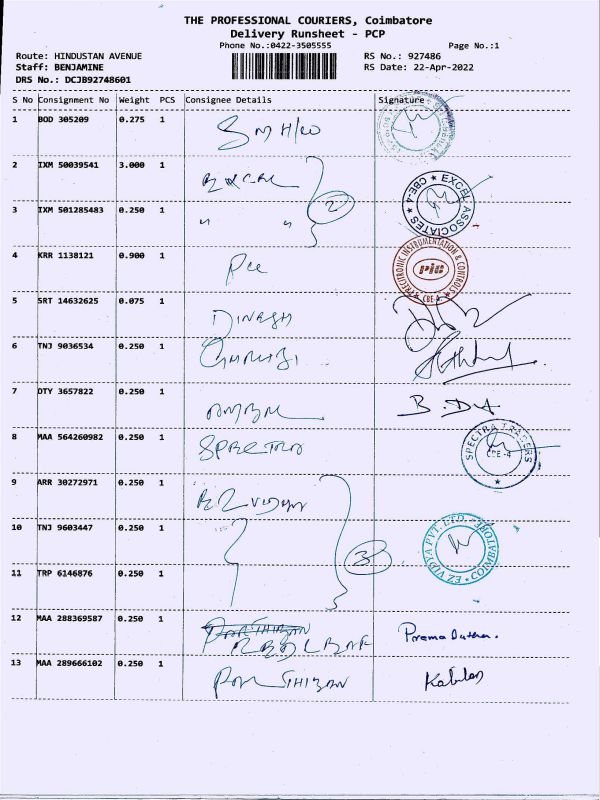 THE PROFESSIONAL COURIERS, Coimbatore
Delivery Runsheet - PCP
Phone No.:0422-3505555 Page No.:1
Route: HINDUSTAN AVENUE RS No.: 927486
Staff: BENJAMINE RS Date: 22-Apr-2022
DRS No.: DCJB92748601
S No Consignment No Weight PCS Consignee Details Signature
1 BOD 305209 0.275 1
2 IXM 50039541 3.000 1 EXCEL
EXCEL ASSOCIATES ★ CBE-4 ★
3 IXM 501285483 0.250 1 " " 2
4 KRR 1138121 0.900 1
PRECITRONIC INSTRUMENTATION & CONTROLS
PIC
CBE-4
5 SRT 14632625 0.075 1 DINESH
6 TNJ 9036534 0.250 1
7 OTY 3657822 0.250 1
8 MAA 564260982 0.250 1 SPECTRA
SPECTRA TRADERS
CBE-4
9 ARR 30272971 0.250 1 EZ VIDYA
10 TNJ 9603447 0.250 1
EZ VIDYA PVT. LTD. ★ COIMBATORE ★
11 TRP 6146876 0.250 1 3
12 MAA 288369587 0.250 1
13 MAA 289666102 0.250 1 PARTHIBAN Kabilan